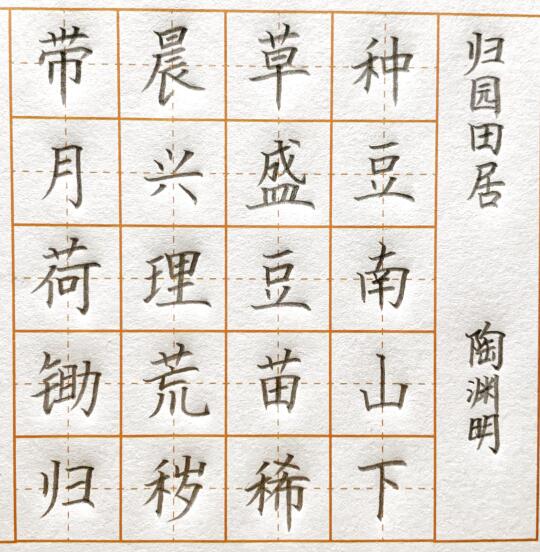 归园田居 陶渊明
种豆南山下
草盛豆苗稀
晨兴理荒秽
带月荷锄归